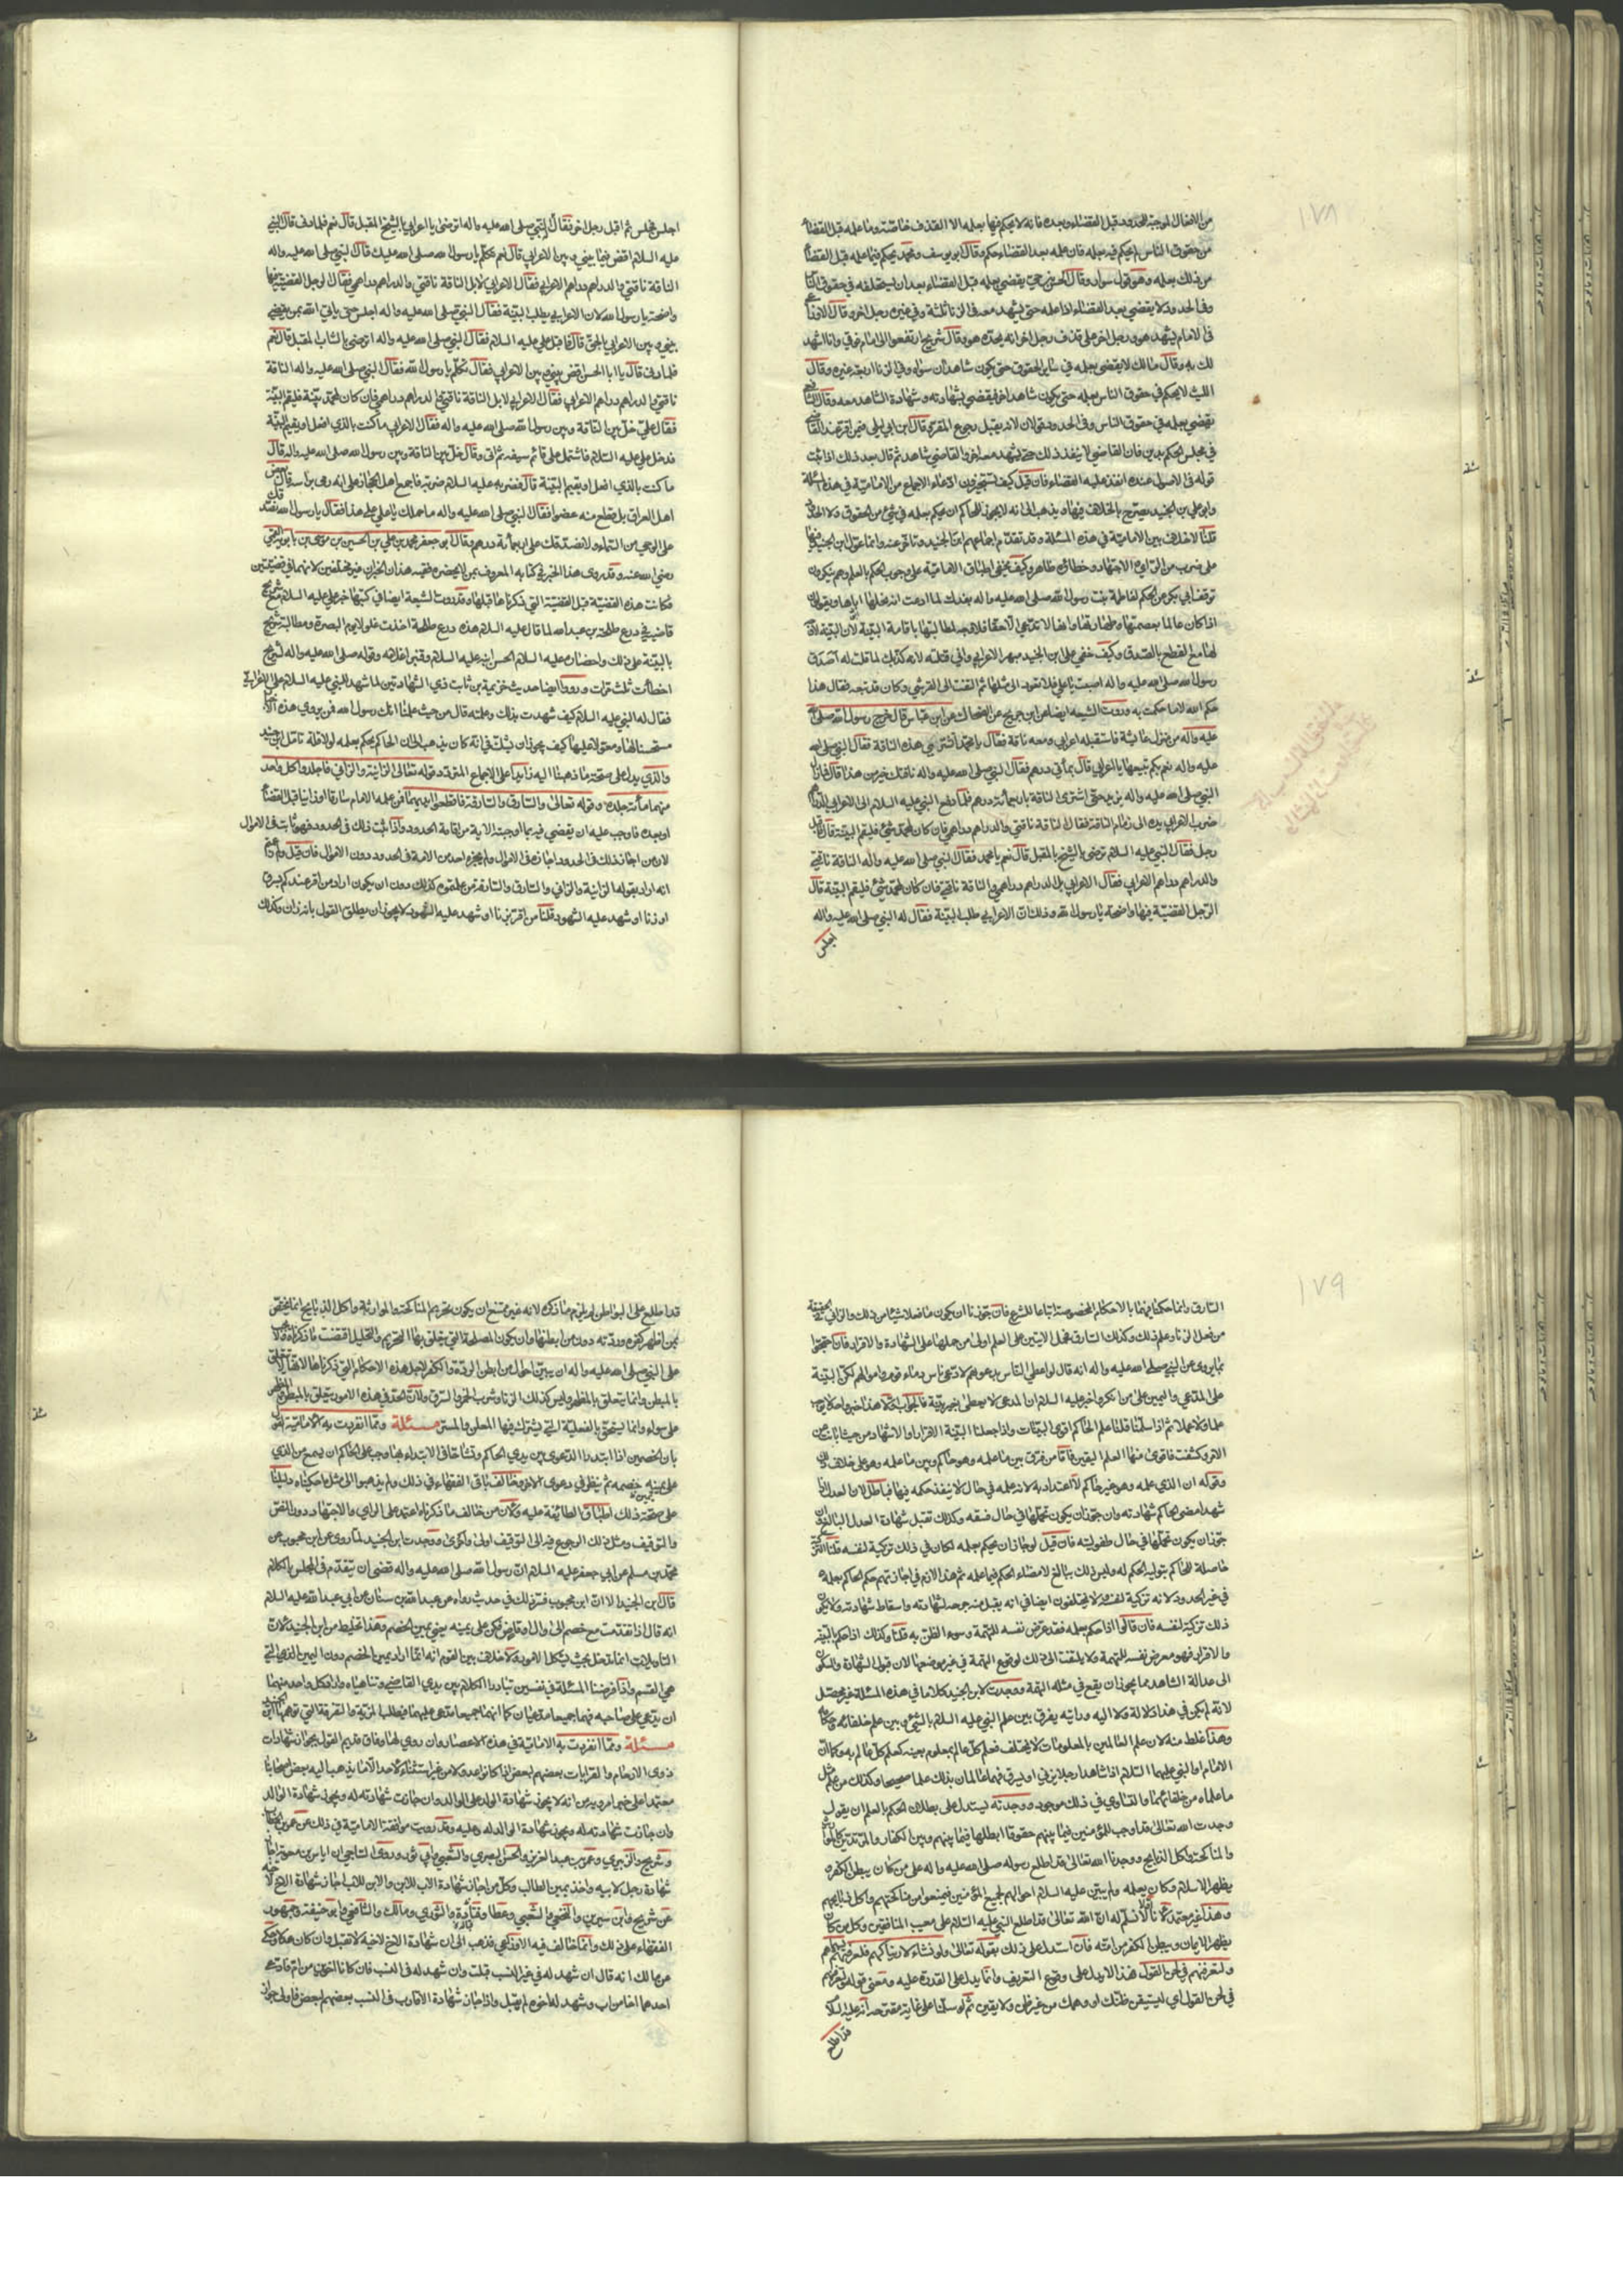 ١٧٨
من الافعال الموجبة للحدود قبل القضاء وبعده فانه لا يحكم فيها بعلمه الا القذف خاصة وما علمه قبل القضاء
من حقوق الناس لم يحكم فيه بعلمه فان علمه بعد القضاء حكم وقال ابو يوسف ومحمد يحكم فيما علمه قبل القضاء
من ذلك بعلمه وهو قول سوار وقال الحسن بن حي يقضي بعلمه قبل القضاء بعد ان يستحلفه في حقوق الناس
وفي الحدود لا يقضي بعد القضاء اذا علمه حتى يشهد معه في الزنا ثلثة وفي غيره رجل اخر وقال الاوزاعي
في الامام يشهد هو ورجل اخر على قذف رجل اخر انه يحده هو وقال شريح ارتفعوا الى امام فوقي وانا اشهد
لك به وقال مالك لا يقضي بعلمه في سائر الحقوق حتى يكون شاهدان سواه وفي الزنا اربعة غيره وقال
الليث لا يحكم في حقوق الناس بعلمه حتى يكون شاهد اخر فيقضي بشهادته وشهادة الشاهد معه وقال الشافعي
يقضي بعلمه في حقوق الناس وفي الحدود قولان لانه يقبل رجوع المقر وقال ابن ابي ليلى فيمن اقر عند القاضي
في مجلس الحكم بدين فان القاضي لا ينفذ ذلك حتى يشهد معه اخر والقاضي شاهد ثم قال بعد ذلك اذا ثبت
قوله في الاصول عنده انفذ عليه القضاء فان قيل كيف تستجيزون ادعاء الاجماع من الامامية في هذه المسئلة
وابو علي بن الجنيد يصرح بالخلاف فيها ويذهب الى انه لا يجوز للحاكم ان يحكم بعلمه في شئ من الحقوق ولا الحدود
قلنا لا خلاف بين الامامية في هذه المسئلة وقد تقدم اجماعهم ابن الجنيد وتاخر عنه وانما عول ابن الجنيد فيها
على ضرب من الراي والاجتهاد وخطاؤه ظاهر وكيف يخفى اطباق الامامية على وجوب الحكم بالعلم وهم ينكرون
توقف ابي بكر عن الحكم لفاطمة بنت رسول الله صلى الله عليه واله بفدك لما ادعت انه نحلها ابوها ويقولون
اذا كان عالما بعصمتها وطهارتها وانها لا تدعي الا حقا فلا وجه لمطالبتها باقامة البينة لان البينة لا وجه
لها مع القطع بالصدق وكيف خفي على ابن الجنيد
رسول الله صلى الله عليه واله اصبت يا علي فلا تعود الى مثلها ثم التفت الى القرشي وكان قد تبعه فقال هذا
حكم الله لا ما حكمت به وروت الشيعه ايضا عن ابن جريج عن الضحاك عن ابن عباس قال خرج رسول الله صلى الله
عليه واله من منزل عائشة فاستقبله اعرابي ومعه ناقة فقال يا محمد اتشتري هذه الناقة فقال النبي صلى الله
عليه واله نعم بكم تبيعها يا اعرابي قال بمأتي درهم فقال النبي صلى الله عليه واله ناقتك خير من هذا قال فما زال
النبي صلى الله عليه واله يزيد حتى اشترى الناقة باربعمائة درهم فلما دفع النبي عليه السلام الى الاعرابي الدراهم
ضرب الاعرابي يده الى زمام الناقة فقال الناقة ناقتي والدراهم دراهمي فان كان لمحمد شئ فليقم البينة قال فاقبل
رجل فقال النبي عليه السلام ترضى بالشيخ المقبل قال نعم يا محمد فقال النبي صلى الله عليه واله الناقة ناقتي
والدراهم دراهم الاعرابي فقال الاعرابي بل الدراهم دراهمي والناقة ناقتي فان كان لمحمد شئ فليقم البينة قال
الرجل القضية فيها واضحة يا رسول الله وذلك ان الاعرابي طلب البينة فقال له النبي صلى الله عليه واله
اجلس
اجلس فجلس ثم اقبل رجل اخر فقال النبي صلى الله عليه واله اترضى يا اعرابي بالشيخ المقبل قال نعم فلما دنى قال النبي
عليه السلام اقض فيما بيني وبين الاعرابي قال نعم تكلم يا رسول الله صلى الله عليك قال النبي صلى الله عليه واله
الناقة ناقتي والدراهم دراهم الاعرابي فقال الاعرابي لا بل الناقة ناقتي والدراهم دراهمي فقال الرجل القضية فيها
واضحة يا رسول الله لان الاعرابي يطلب البينة فقال النبي صلى الله عليه واله اجلس حتى ياتي الله بمن يقضي
بيني وبين الاعرابي بالحق قال فاقبل علي عليه السلام فقال النبي صلى الله عليه واله اترضى بالشاب المقبل قال نعم
فلما دنى قال يا ابا الحسن اقض بيني وبين الاعرابي فقال تكلم يا رسول الله فقال النبي صلى الله عليه واله الناقة
ناقتي والدراهم دراهم الاعرابي فقال الاعرابي لا بل الناقة ناقتي والدراهم دراهمي فان كان لمحمد بينة فليقم البينة
فقال علي خل بين الناقة وبين رسول الله صلى الله عليه واله فقال الاعرابي ما كنت بالذي افعل او يقيم البينة
فدخل علي عليه السلام فاشتمل على قائم سيفه ثم اتى وقال خل بين الناقة وبين رسول الله صلى الله عليه واله قال
ما كنت بالذي افعل او يقيم البينة قال فضربه علي عليه السلام ضربة فاجمع اهل الحجاز على انه رمى براسه وقال بعض
اهل العراق بل قطع منه عضوا فقال النبي صلى الله عليه واله ما حملك يا علي على هذا فقال يا رسول الله نصدقك
على الوحي من السماء ولا نصدقك على اربعمأة درهم وقال ابو جعفر محمد بن علي بن الحسين بن موسى بن بابويه القمي
رضي الله عنه وقد روى هذا الخبر في كتابه المعروف بمن لا يحضره فقيه هذان الخبران غير مختلفين لانهما في قضيتين
وكانت هذه القضية قبل القضية التي ذكرناها قبلها وقد روت الشيعة ايضا في كتبها خبر علي عليه السلام مع شريح
قاضيه في درع طلحة بن عبد الله لما قال عليه السلام هذه درع طلحة اخذت غلولا يوم البصرة ومطالبة شريح
بالبينة على ذلك واحضاره عليه السلام الحسن ابنه عليه السلام وقنبر غلامه وقوله صلى الله عليه واله لشريح
اخطأت ثلث مرات ورووا ايضا حديث خزيمة بن ثابت ذي الشهادتين لما شهد للنبي عليه السلام على الاعرابي
فقال له النبي عليه السلام كيف شهدت بذلك وعلمته قال من حيث علمنا انك رسول الله فمن يروي هذه الاخبار
مستحسنا لها ومعولا عليها كيف يجوز ان يشك في انه كان يذهب الى ان الحاكم يحكم بعلمه لولا قلة تامل ابن جنيد
والذي يدل على صحة ما ذهبنا اليه زايدا على الاجماع المتردد قوله تعالى الزانية والزاني فاجلدوا كل واحد
منهما مأة جلدة وقوله تعالى والسارق والسارقة فاقطعوا ايديهما فمن علمه الامام سارقا او زانيا قبل القضاء
او بعده فواجب عليه ان يقضي فيه بما اوجبته الاية من اقامة الحدود واذا ثبت ذلك في الحدود فهو ثابت في الاموال
لان من اجاز ذلك في الحدود اجازه في الاموال ولم يجزه احد من الامة في الحدود دون الاموال فان قيل لم زعمتم
انه اراد بقوله الزانية والزاني والسارق والسارقة من علمتموه كذلك دون ان يكون اراد من اقر عندكم بسرق
او زنا او شهد عليه الشهود قلنا من اقر بزنا او شهد عليه الشهود لا يجوز ان يطلق القول بانه زان وكذلك
١٧٩
السارق وانما حكمنا فيهما بالاحكام المخصوصة اتباعا للشرع فان جوزنا ان يكون ما فعلا شيئا من ذلك والزاني في الحقيقة
من فعل الزنا وعلم ذلك وكذلك السارق فحمل الايتين على العلم اولى من حملها على الشهادة والاقرار فان احتجوا
بما يروى عن النبي صلى الله عليه واله انه قال لو اعطي الناس بدعواهم لادعى ناس دماء قوم واموالهم لكن البينة
على المدعي واليمين على من انكر واخبر عليه السلام ان المدعي لا يعطى بغير بينة فالجواب ان هذا خبر واحد لا يوجب
علما ولا عملا ثم اذا سلمنا قلنا علم الحاكم اقوى البينات واذا جعلنا البينة الاقرار او الاشهاد من حيث ابانت عن
الامر وكشفت فاقوى منها العلم اليقين فاما من فرق بين ما علمه وهو حاكم وبين ما علمه وهو على خلاف ذلك
وقوله ان الذي علمه وهو غير حاكم لا اعتداد به لانه علمه في حال لا ينفذ حكمه فيها فباطل لان العدل اذا
شهد امضى الحاكم شهادته وان جوز ان يكون تحملها في حال فسقه وكذلك تقبل شهادة العدل البالغ وان
جوز ان يكون تحملها في حال طفوليته فان قيل لو جاز ان يحكم بعلمه لكان في ذلك تزكية لنفسه قلنا التزكية
حاصلة للحاكم بتولية الحكم له وليس ذلك بتابع لامضاء الحكم فيما علمه ثم هذا لازم في اجازتهم حكم الحاكم بعلمه
في غير الحدود لانه تزكية لنفسه ولا يختلفون ايضا في انه يقبل منه جرحه لشهادته واسقاط شهادته ولا يكون
ذلك تزكية لنفسه فان قالوا اذا حكم بعلمه فقد عرض نفسه للتهمة وسوء الظن به قلنا وكذلك اذا حكم بالبينة
والاقرار فهو معرض نفسه للتهمة ولا يلتفت الى ذلك لوقوع التهمة في غير موضعها لان قبول الشهادة والسكون
الى عدالة الشاهد مما يجوز ان يقع في مثله التهمة ووجدت لابن الجنيد كلاما في هذه المسئلة غير محصل
لانه لم يكن في هذا ولا له ولا اليه ورايته يفرق بين علم النبي عليه السلام بالشئ وبين علم خلفائه وحكامه
وهذا غلط منه لان علم العالمين بالمعلومات لا يختلف فعلم كل عالم بمعلوم بعينه كعلم كل عالم به وكما ان
الامام او النبي عليهما السلام اذا شاهدا رجلا يزني او يسرق فهما عالمان بذلك علما صحيحا وكذلك من علم مثل
ما علماه من خلفائهما والتساوي في ذلك موجود ووجدته يستدل على بطلان الحكم بالعلم ان يقول
وجدت الله تعالى قد اوجب للمؤمنين فيما بينهم حقوقا ابطلها فيما بينهم وبين الكفار والمرتدين كالمواريث
والمناكحة واكل الذبايح ووجدنا الله تعالى قد اطلع رسوله صلى الله عليه واله على من كان يبطن الكفر و
يظهر الاسلام وكان يعلمه ولم يبين عليه السلام احوالهم لجميع المؤمنين فيمتنعوا من مناكحتهم واكل ذبايحهم
وهذا غير معتمد لانا لا نسلم له ان الله تعالى قد اطلع النبي عليه السلام على معيب المنافقين وكل من كان
يظهر الايمان ويبطن الكفر من امته فان استدل على ذلك بقوله تعالى ولو نشاء لاريناكهم فلعرفتهم بسيماهم
ولتعرفنهم في لحن القول فهذا لا يدل على وقوع التعريف وانما يدل على القدرة عليه ومعنى قوله ولتعرفنهم
في لحن القول اي ليستيقن ظنك او وهمك من غير ظن ولا يقين ثم لو سلمنا على غاية مقترحه انه عليه السلام
قد اطلع
قد اطلع على البواطن لم يلزم ما ذكره لانه غير ممتنع ان يكون تحريم المناكحة والموارثة واكل الذبايح انما يختص
بمن اظهر كفره وردته دون من ابطنها وان يكون المصلحة التي يتعلق بها التحريم والتحليل اقتضت ما ذكرناه فلا يجب
على النبي صلى الله عليه واله ان يبين احوال من ابطن الردة والكفر لاجل هذه الاحكام التي ذكرناها لانها لا تتعلق
بالمبطن وانما يتعلق بالمظهر وليس كذلك الزنا وشرب الخمر والسرقة لان الحد في هذه الامور يتعلق بالمبطن والمظهر
على سواء وانما يستحق بالفعلية التي يشترك فيها المعلن والمسر مسئلة ومما انفردت به الامامية القول
بان الخصمين اذا ابتدرا الدعوى بين يدي الحاكم وتشاحا في الابتداء بها وجب على الحاكم ان يسمع من الذي
على يمين خصمه ثم ينظر في دعوى الاخر وخالف باقي الفقهاء في ذلك ولم يذهبوا الى مثل ما حكيناه دليلنا
على صحة ذلك اطباق الطائفة عليه ولان من خالف ما ذكرناه اعتمد على الراي والاجتهاد دون النص
والتوقيف ومثل ذلك الرجوع فيه الى التوقيف اولى واحرى ووجدت ابن الجنيد لما روى عن ابن محبوب عن
محمد بن مسلم عن ابي جعفر عليه السلام ان رسول الله صلى الله عليه واله قضى ان يتقدم في المجلس بالكلام
قال ابن الجنيد الا ان ابن محبوب فسر ذلك في حديث رواه عن عبد الله بن سنان عن ابي عبد الله عليه السلام
انه قال اذا تقدمت مع خصم الى وال او قاض فكن على يمينه يعني يمين الخصم وهذا تخليط من ابن الجنيد لان
التاويلات انما تدخل بحيث يشكل الامور ولا خلاف بين القوم انه انما اراد يمين الخصم دون اليمين الذي التي
هي القسم واذا فرضنا المسئلة في نفسين تبادرا الكلام بين يدي القاضي وتناهياه واراد كل واحد منهما
ان يدعي على صاحبه فهما جميعا مدعيان كما انهما جميعا مدعى عليهما فبطل المزية والتفرقة التي توهمها ابن الجنيد
مسئلة ومما انفردت به الامامية في هذه الاعصار وان روي لها وفاق قديم القول بجواز شهادات
ذوي الارحام والقرابات بعضهم لبعض اذا كانوا عدولا من غير استثناء لاحد الا ما يذهب اليه بعض اصحابنا
معتمدا على خبر يرويه من انه لا يجوز شهادة الولد على الوالد وان جازت شهادته له ويجوز شهادة الوالد
وان جازت شهادته له ويجوز شهادة الوالد له وعليه وقد رويت موافقة الامامية في ذلك عن عمر بن الخطاب
وشريح والزهري وعمر بن عبد العزيز والحسن البصري والشعبي وابي ثور وروى الساجي ان اياس بن معوية اجاز
شهادة رجل لابيه واخذ يمين الطالب وكل من اجاز شهادة الاب للابن والابن للاب اجاز شهادة الاخ لاخيه
عن شريح وابن سيرين والنخعي والشعبي وعطا وقتادة والثوري ومالك والشافعي وابو حنيفة وجمهور
الفقهاء على ذلك وانما خالف فيه الاوزاعي فذهب الى ان شهادة الاخ لاخيه لا تقبل وان كان عدلا وحكي
عن مالك انه قال ان شهد له في غير النسب قبلت وان شهد له في النسب فان كانا اخوين من ام فادعى
احدهما اخا من اب وشهد له اخوه لم يقبل واذا جاز شهادة الاقارب في النسب بعضهم لبعض فاولى جوازا